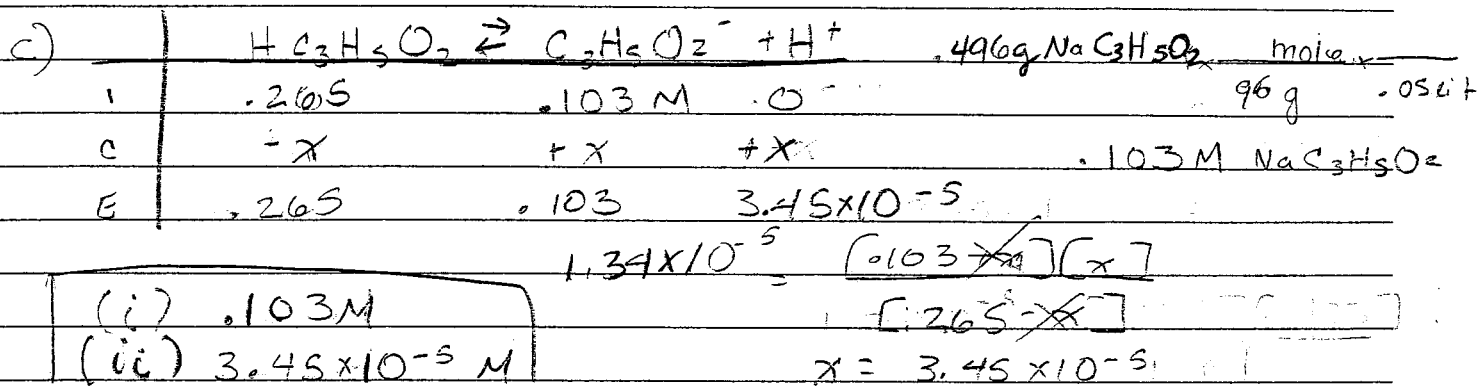 c) HC₃H₅O₂ ⇄ C₃H₅O₂⁻ + H⁺ .496g NaC₃H5O₂ × mole ×
96 g .05 lit
I .265 .103 M 0
C -x +x +x .103 M NaC₃H₅O₂
E .265 .103 3.45x10⁻⁵
1.34x10⁻⁵ = [.103+x][x]
[.265-x]
(i) .103M
(ii) 3.45x10⁻⁵ M x = 3.45x10⁻⁵